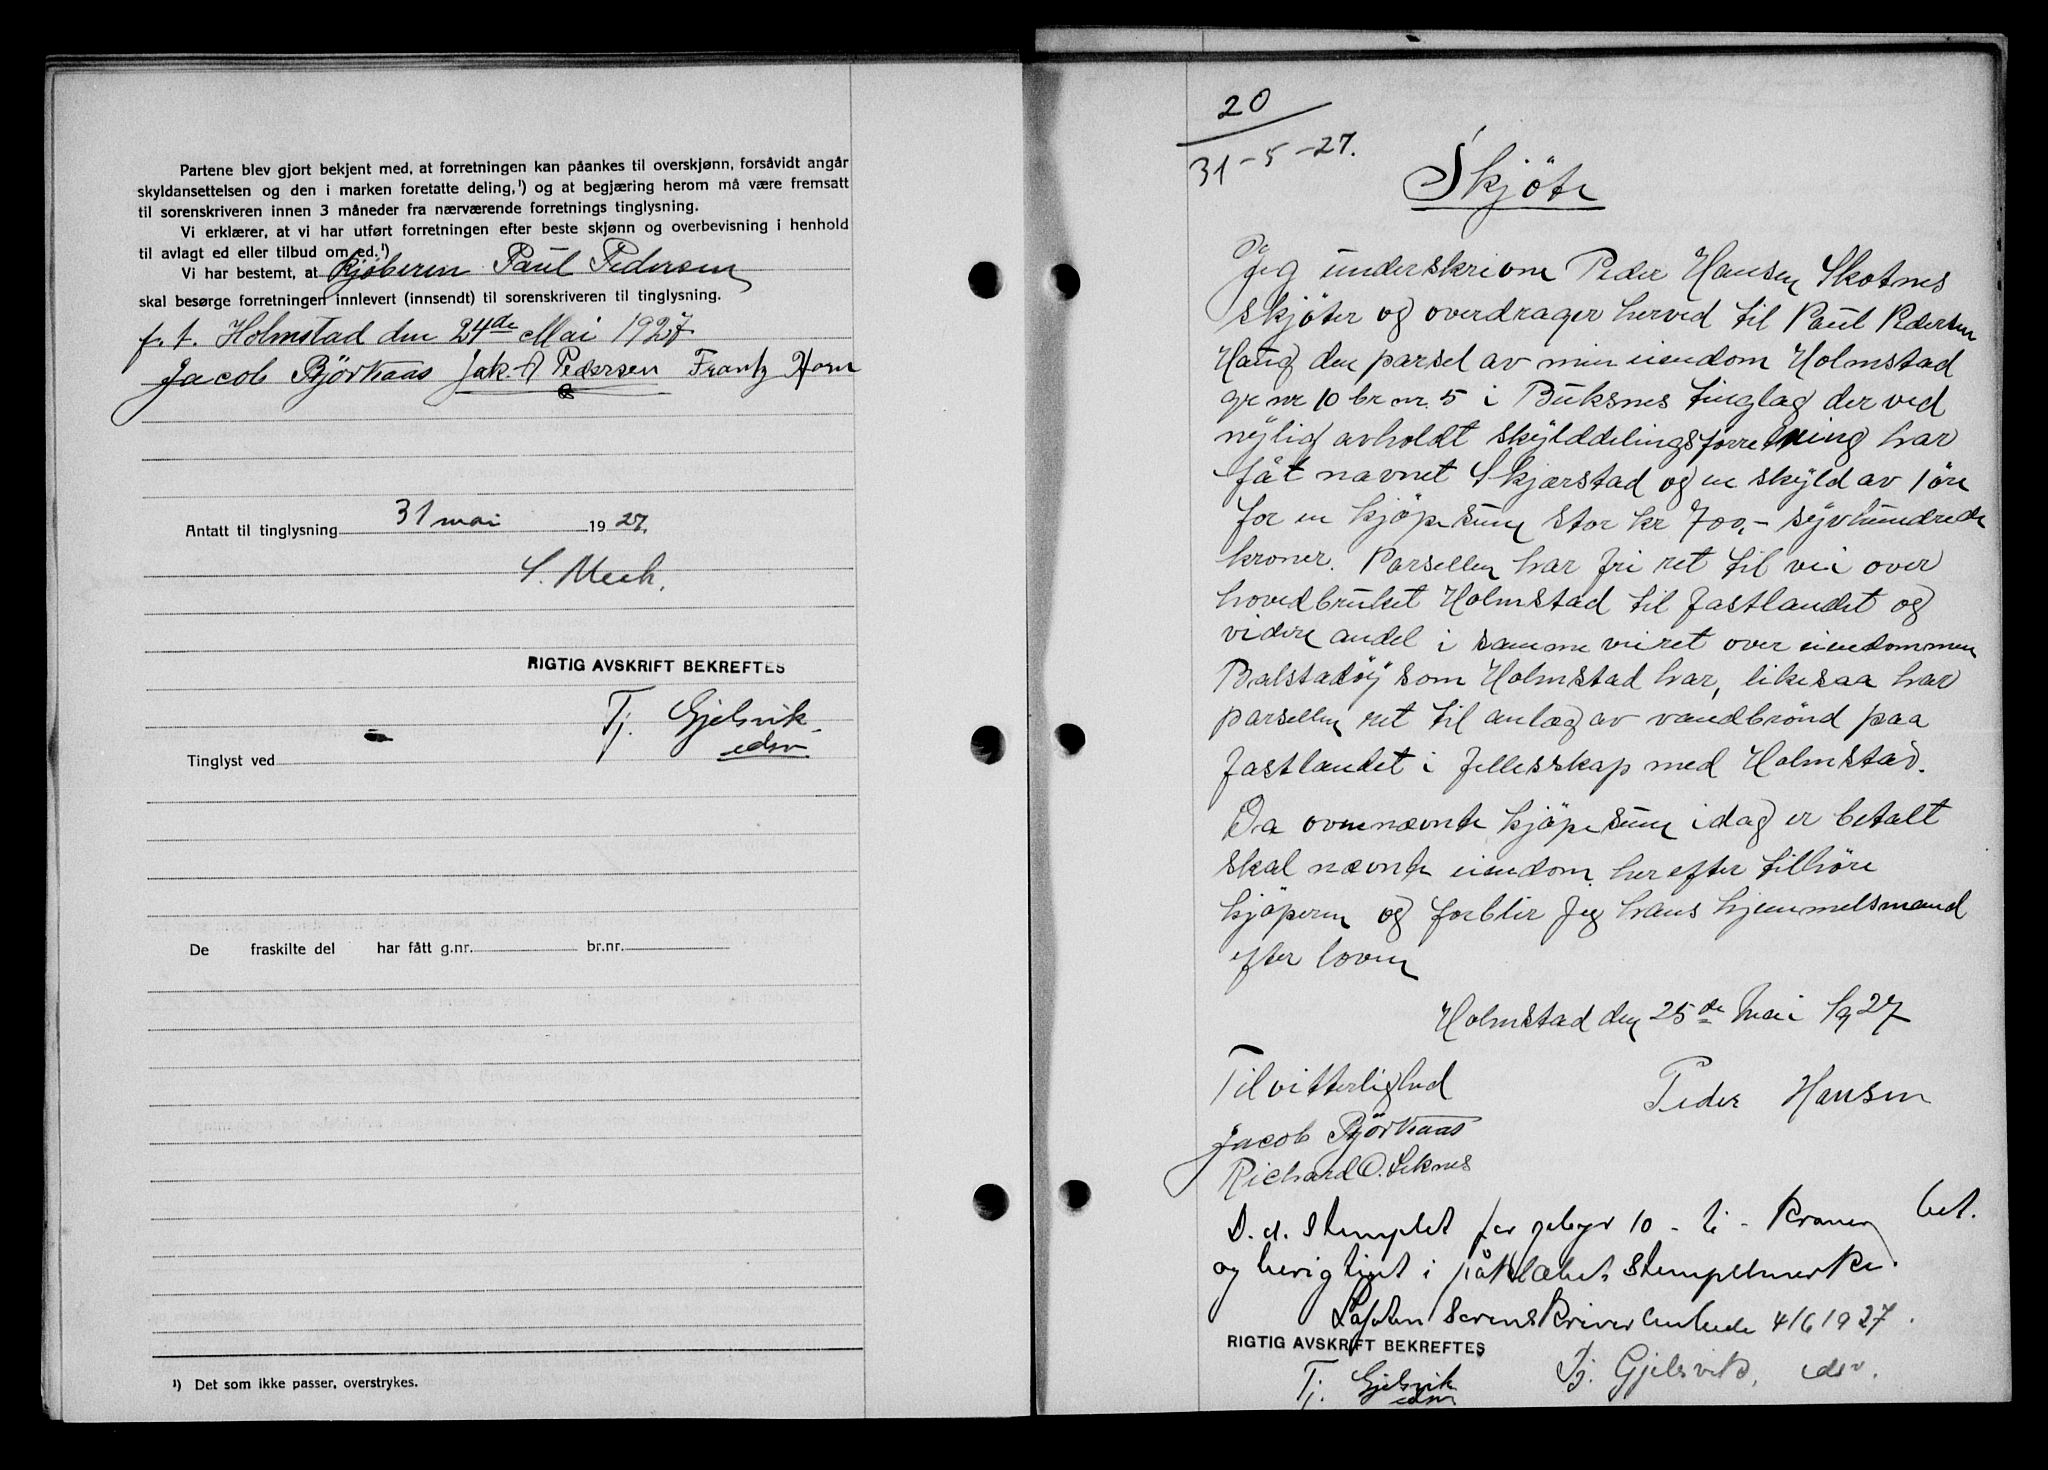 Partene blev gjort bekjent med, at forretningen kan påankes til overskjønn, forsåvidt angår
skyldansettelsen og den i marken foretatte deling,¹) og at begjæring herom må være fremsatt
til sorenskriveren innen 3 måneder fra nærværende forretnings tinglysning.
Vi erklærer, at vi har utført forretningen efter beste skjønn og overbevisning i henhold
til avlagt ed eller tilbud om ed.¹)
Vi har bestemt, at Kjöberen Paul Pedersen
skal besørge forretningen innlevert (innsendt) til sorenskriveren til tinglysning.
f. t. Holmstad den 24de Mai 1927
Jacob Björkaas Jak. A Pedersen Frantz Horn
Antatt til tinglysning 31 mai 1927.
RIGTIG AVSKRIFT BEKREFTES
Tj. Gjelsvik
edsv
Tinglyst ved
De fraskilte del har fått g.nr. br.nr.
¹) Det som ikke passer, overstrykes.
20
31-5-27.
Skjöte
Jeg underskrivne Peder Hansen Skotnes
skjöter og overdrager herved til Paul Pedersen
Haug den parsel av min eiendom Holmstad
gr nr 10 br nr. 5 i Buksnes tinglag der ved
nylig avholdt skylddelingsforretning har
fåt navnet Skjærstad og en skyld av 1 öre
for en kjöpesum stor kr 700,- syvhundrede
kroner. Parsellen har fri ret til vei over
hovedbruket Holmstad til fastlandet og
videre andel i samme veiret over eiendommen
Balstadöy som Holmstad har, likesaa har
parsellen ret til anlæg av vandbrönd paa
fastlandet i fellesskap med Holmstad.
Da ovennævnte kjöpesum idag er betalt
skal nævnte eiendom herefter tilhöre
kjöperen og forblir jeg hans hjemmelsmand
efter loven
Holmstad den 25de Mai 1927
Til vitterlighed Peder Hansen
Jacob Björkaas
Richard O. Leknes
D. d. stemplet for gebyr 10 - ti - kroner bet.
og berigtiget i påklæbet stempelmerke.
Lofoten Sorenskriverembede 4/6 1927.
RIGTIG AVSKRIFT BEKREFTES
Tj. Gjelsvik, edsv.
Tj. Gjelsvik
edsv